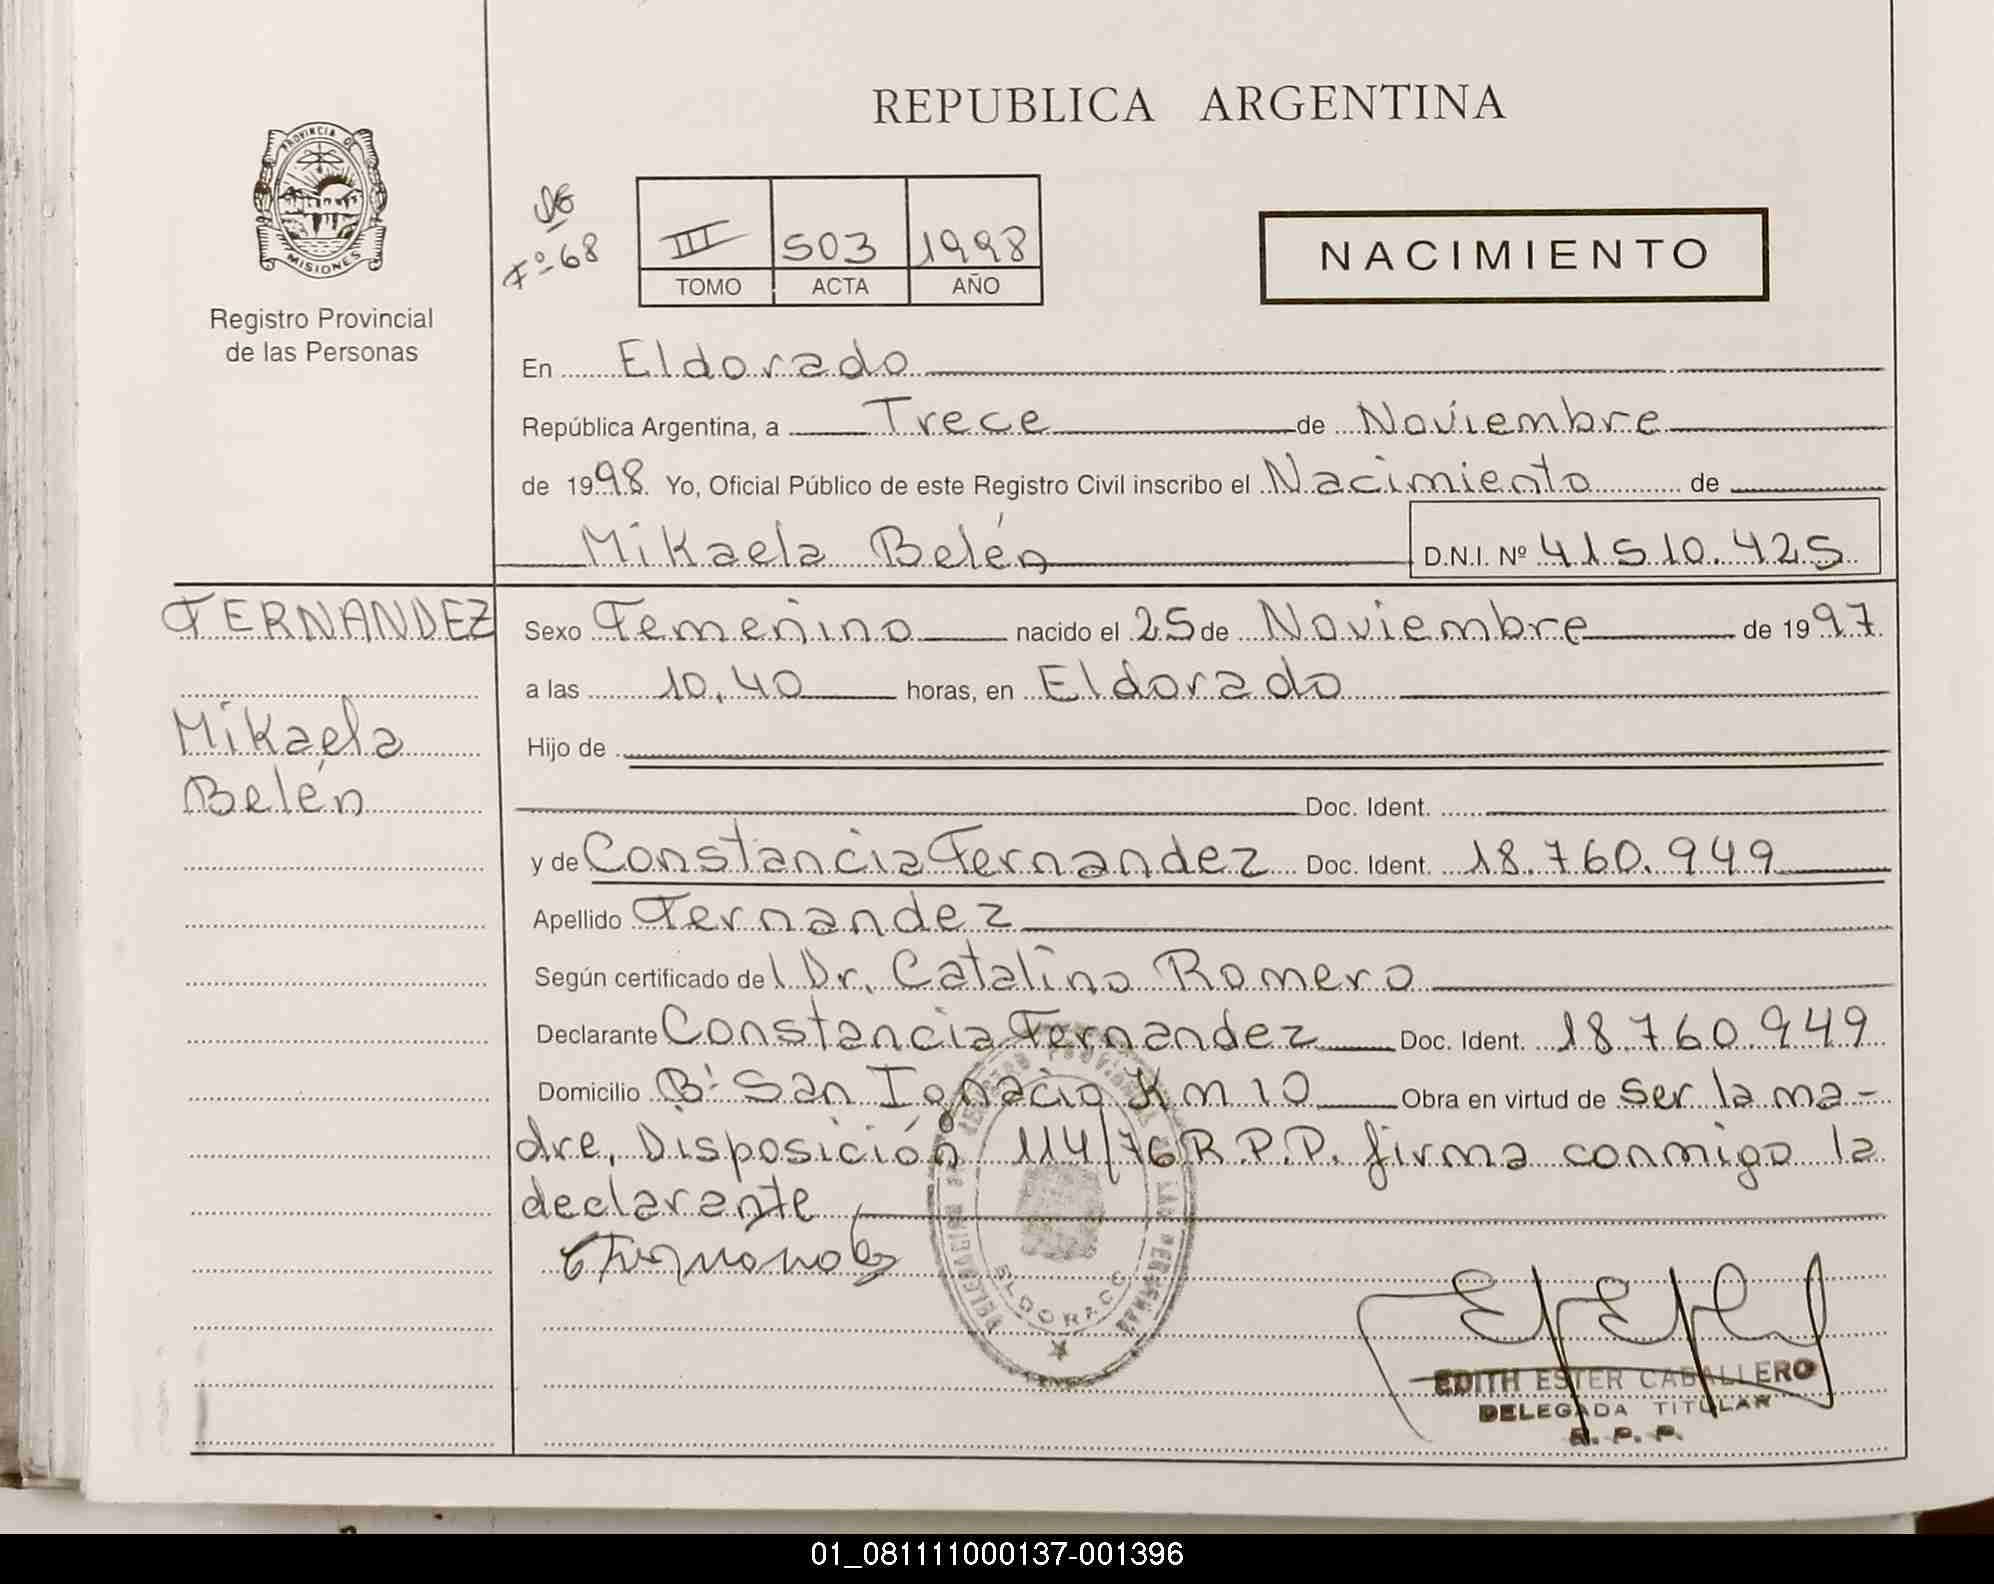 REPUBLICA ARGENTINA
PROVINCIA DE
MISIONES
Registro Provincial
de las Personas
Fº 68
III 503 1998
TOMO ACTA AÑO
NACIMIENTO
En Eldorado
República Argentina, a Trece de Noviembre
de 1998. Yo, Oficial Público de este Registro Civil inscribo el Nacimiento de
Mikaela Belén D.N.I. Nº 41510.425
FERNANDEZ
Mikaela
Belén
Sexo Femenino nacido el 25 de Noviembre de 1997
a las 10,40 horas, en Eldorado
Hijo de
Doc. Ident.
y de Constancia Fernandez Doc. Ident. 18.760.949
Apellido Fernandez
Según certificado del Dr. Catalino Romero
Declarante Constancia Fernandez Doc. Ident. 18.760.949
Domicilio Bº San Ignacio Km 10 Obra en virtud de ser la ma-
dre, Disposición 114/76 R.P.P. firma conmigo la
declarante
ELDORADO
EDITH ESTER CABALLERO
DELEGADA TITULAR
R. P. P.
01_081111000137-001396